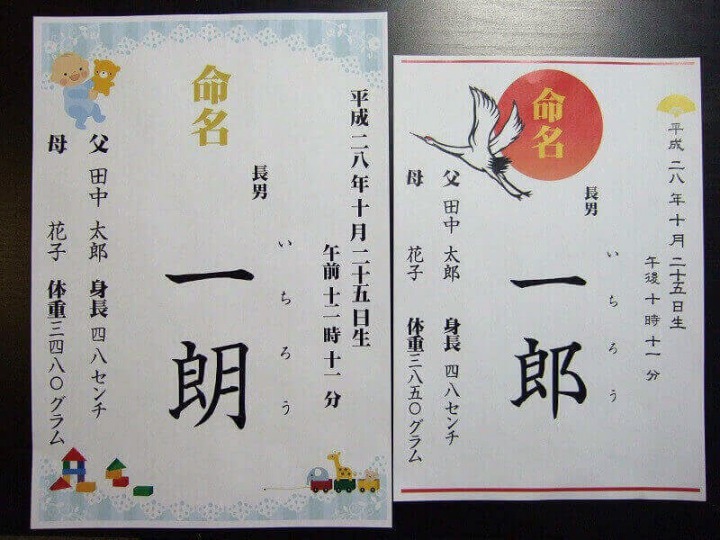 命名
平成 二八年 十月 二十五日生
午前 十二時 十一 分
いちろう
長男
一朗
父 田中 太郎 身長 四八センチ
母 花子 体重 三四八〇グラム
命名
平成 二八 年 十月 二十五日生
午後 十時 十一 分
いちろう
長男
一郎
父 田中 太郎 身長 四八センチ
母 花子 体重 三八五〇グラム